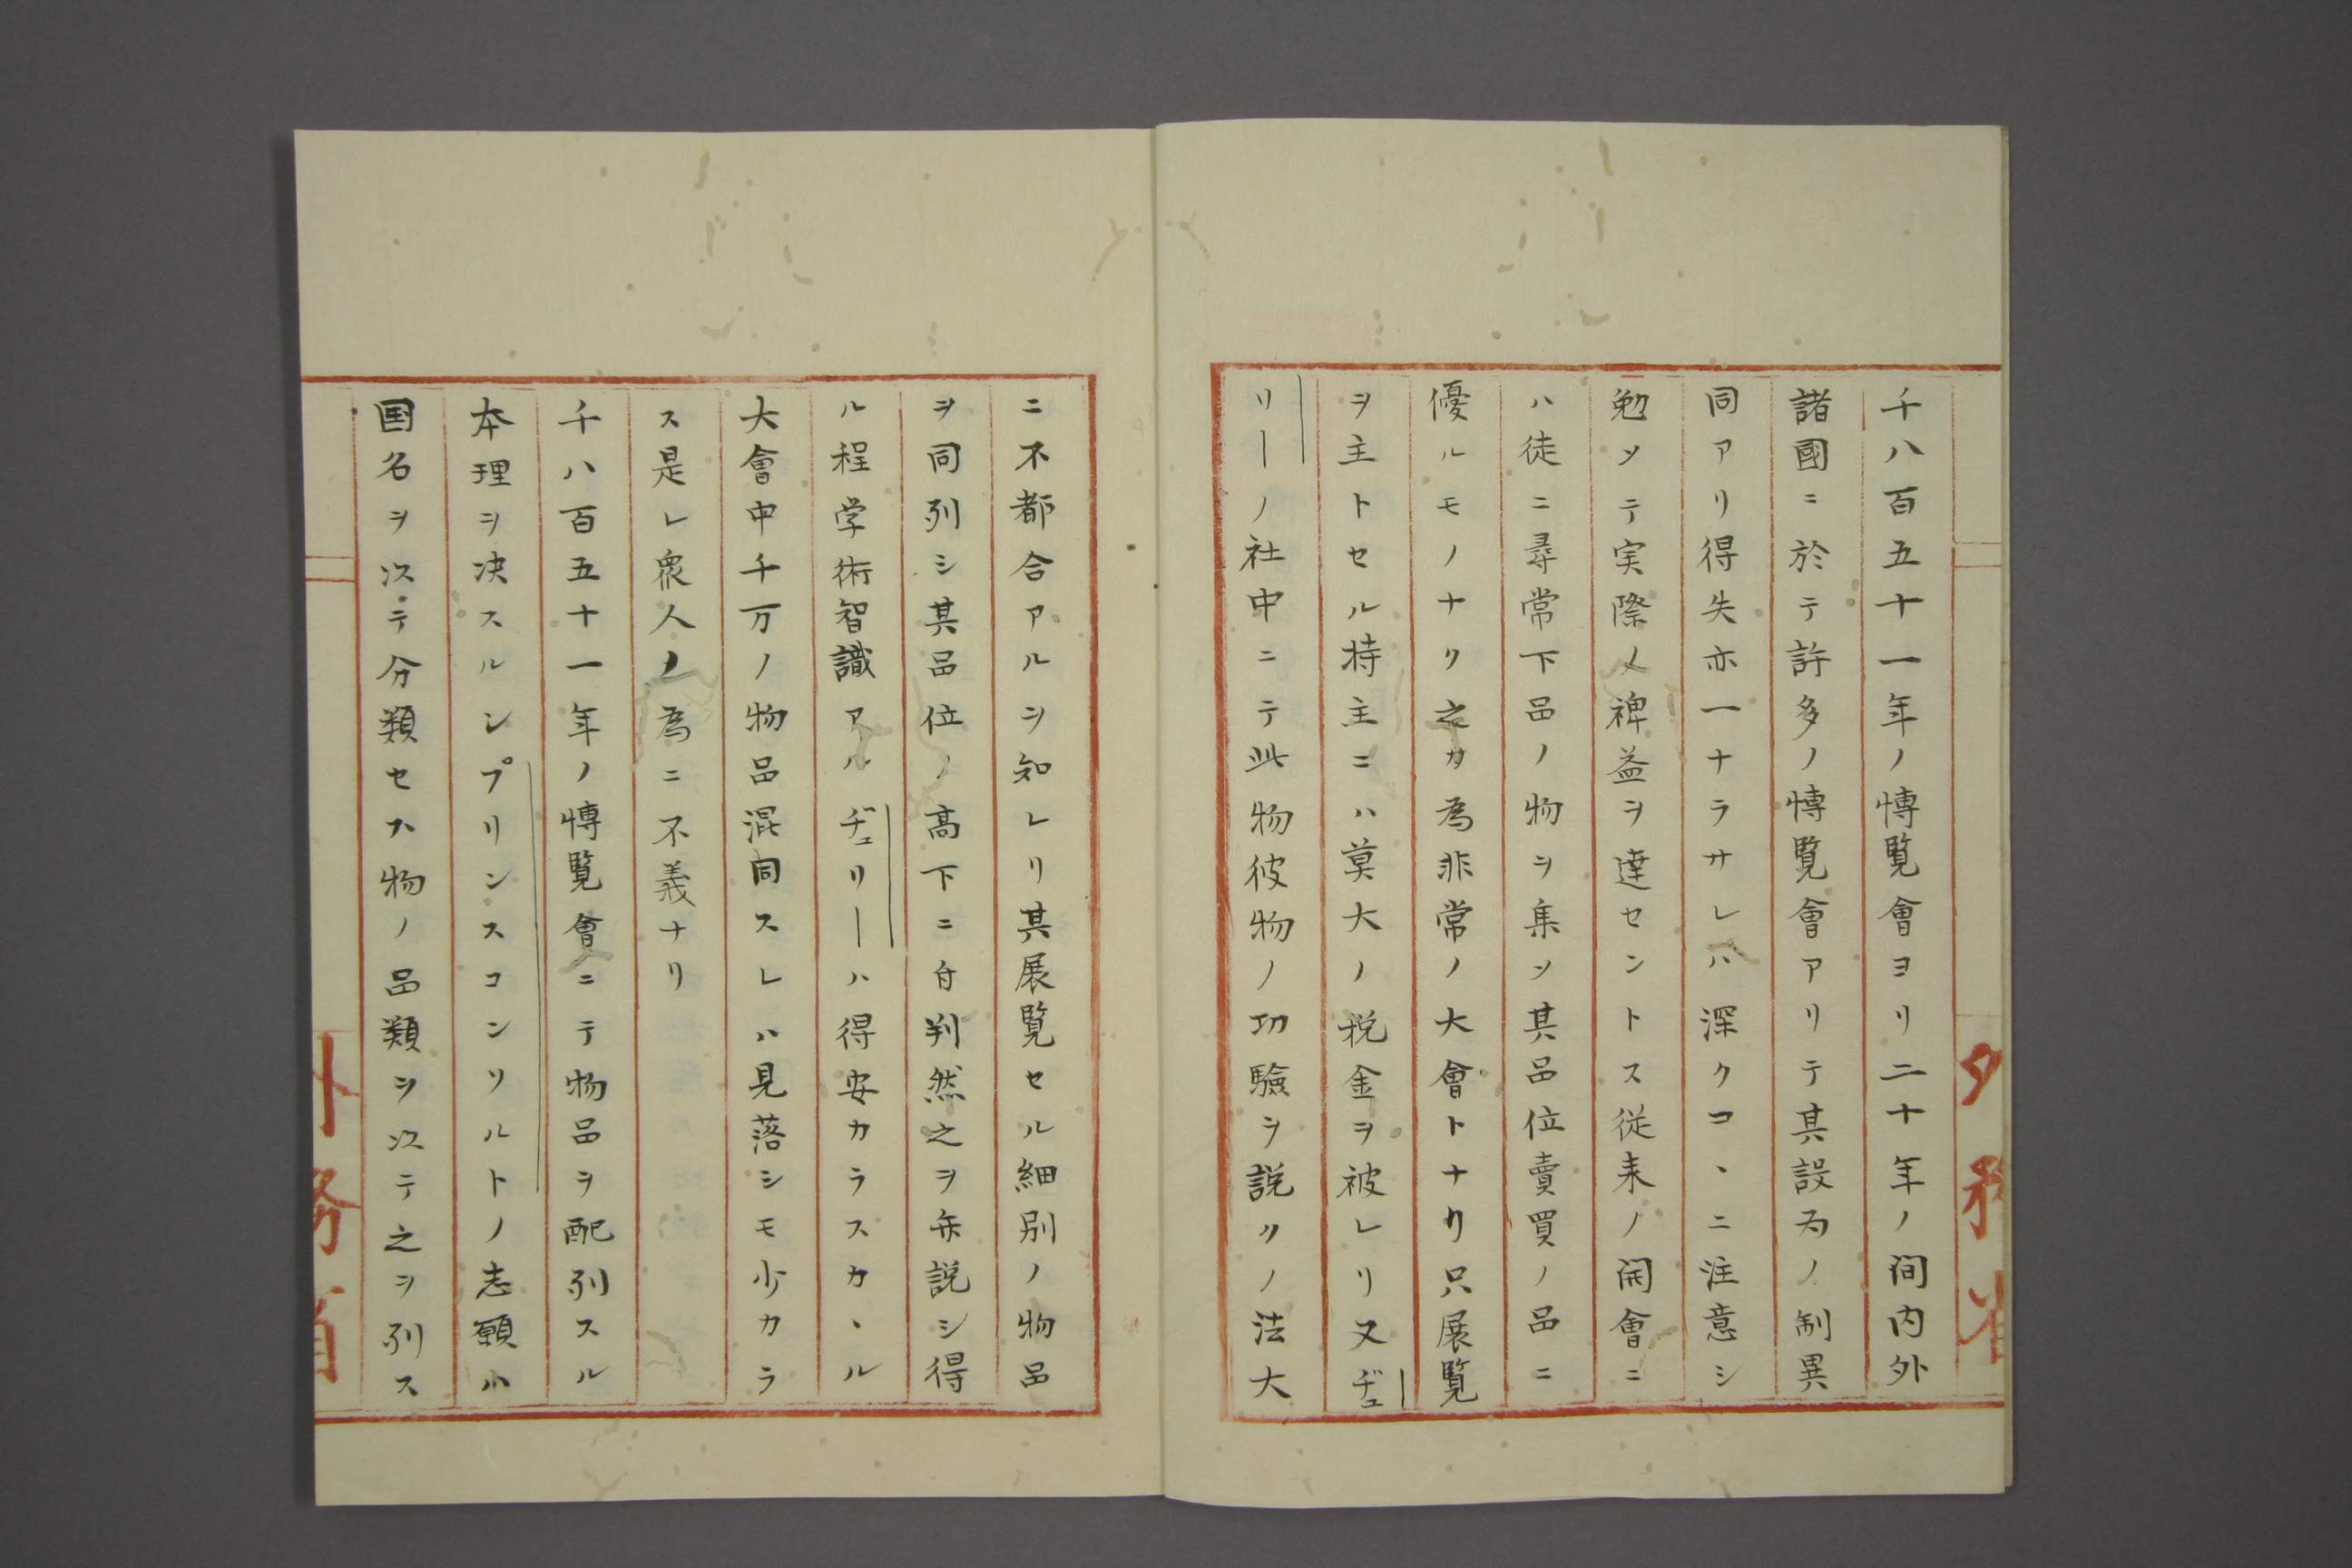 千八百五十一年ノ博覧會ヨリ二十年ノ間内外
諸國ニ於テ許多ノ博覧會アリテ其設為ノ制異
同アリ得失亦一ナラサレハ深クコヽニ注意シ
勉メテ実際ノ裨益ヲ達セントス従来ノ開會ニ
ハ徒ニ尋常下品ノ物ヲ集メ其品位賣買ノ品ニ
優ルモノナク之カ為非常ノ大會トナリ只展覧
ヲ主トセル持主ニハ莫大ノ税金ヲ被レリ又ヂェ
リーノ社中ニテ此物彼物ノ功驗ヲ説クノ法大
ニ不都合アルヲ知レリ其展覧セル細別ノ物品
ヲ同列シ其品位ノ高下ニ自判然之ヲ弁説シ得
ル程学術智識アルヂェリーハ得安カラスカヽル
大會中千万ノ物品混同スレハ見落シモ少カラ
ス是レ衆人ノ為ニ不義ナリ
千八百五十一年ノ博覧會ニテ物品ヲ配列スル
本理ヲ决スルンプリンスコンソルトノ志願ハ
国名ヲ次テ分類セス物ノ品類ヲ次テ之ヲ列ス
外務省
外務省